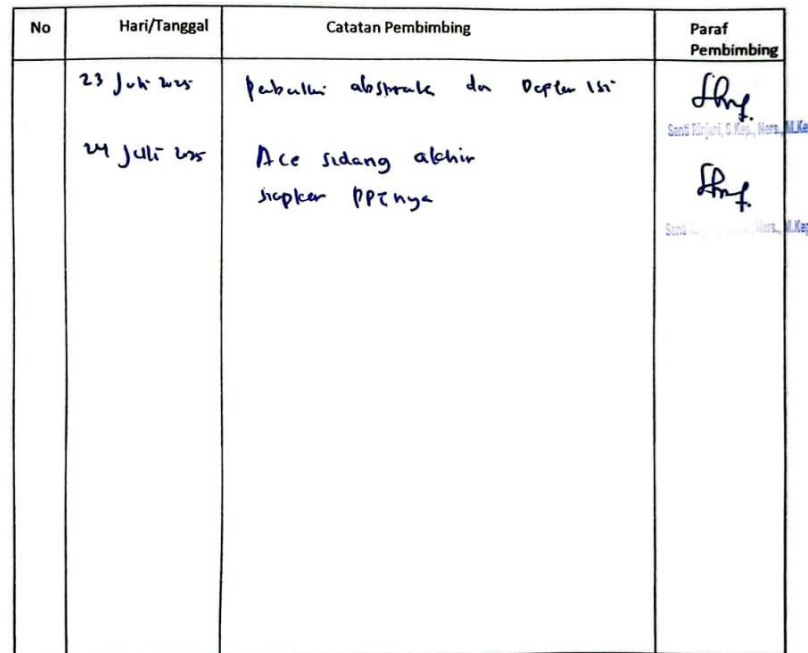 No Hari/Tanggal Catatan Pembimbing Paraf
Pembimbing
23 Juli 2025 Perbaiki abstrak dan Daftar Isi
Santi Rinjani, S.Kep., Ners., M.Kep
24 Juli 2025 Acc sidang akhir
siapkan PPTnya
Santi Ners., M.Kep